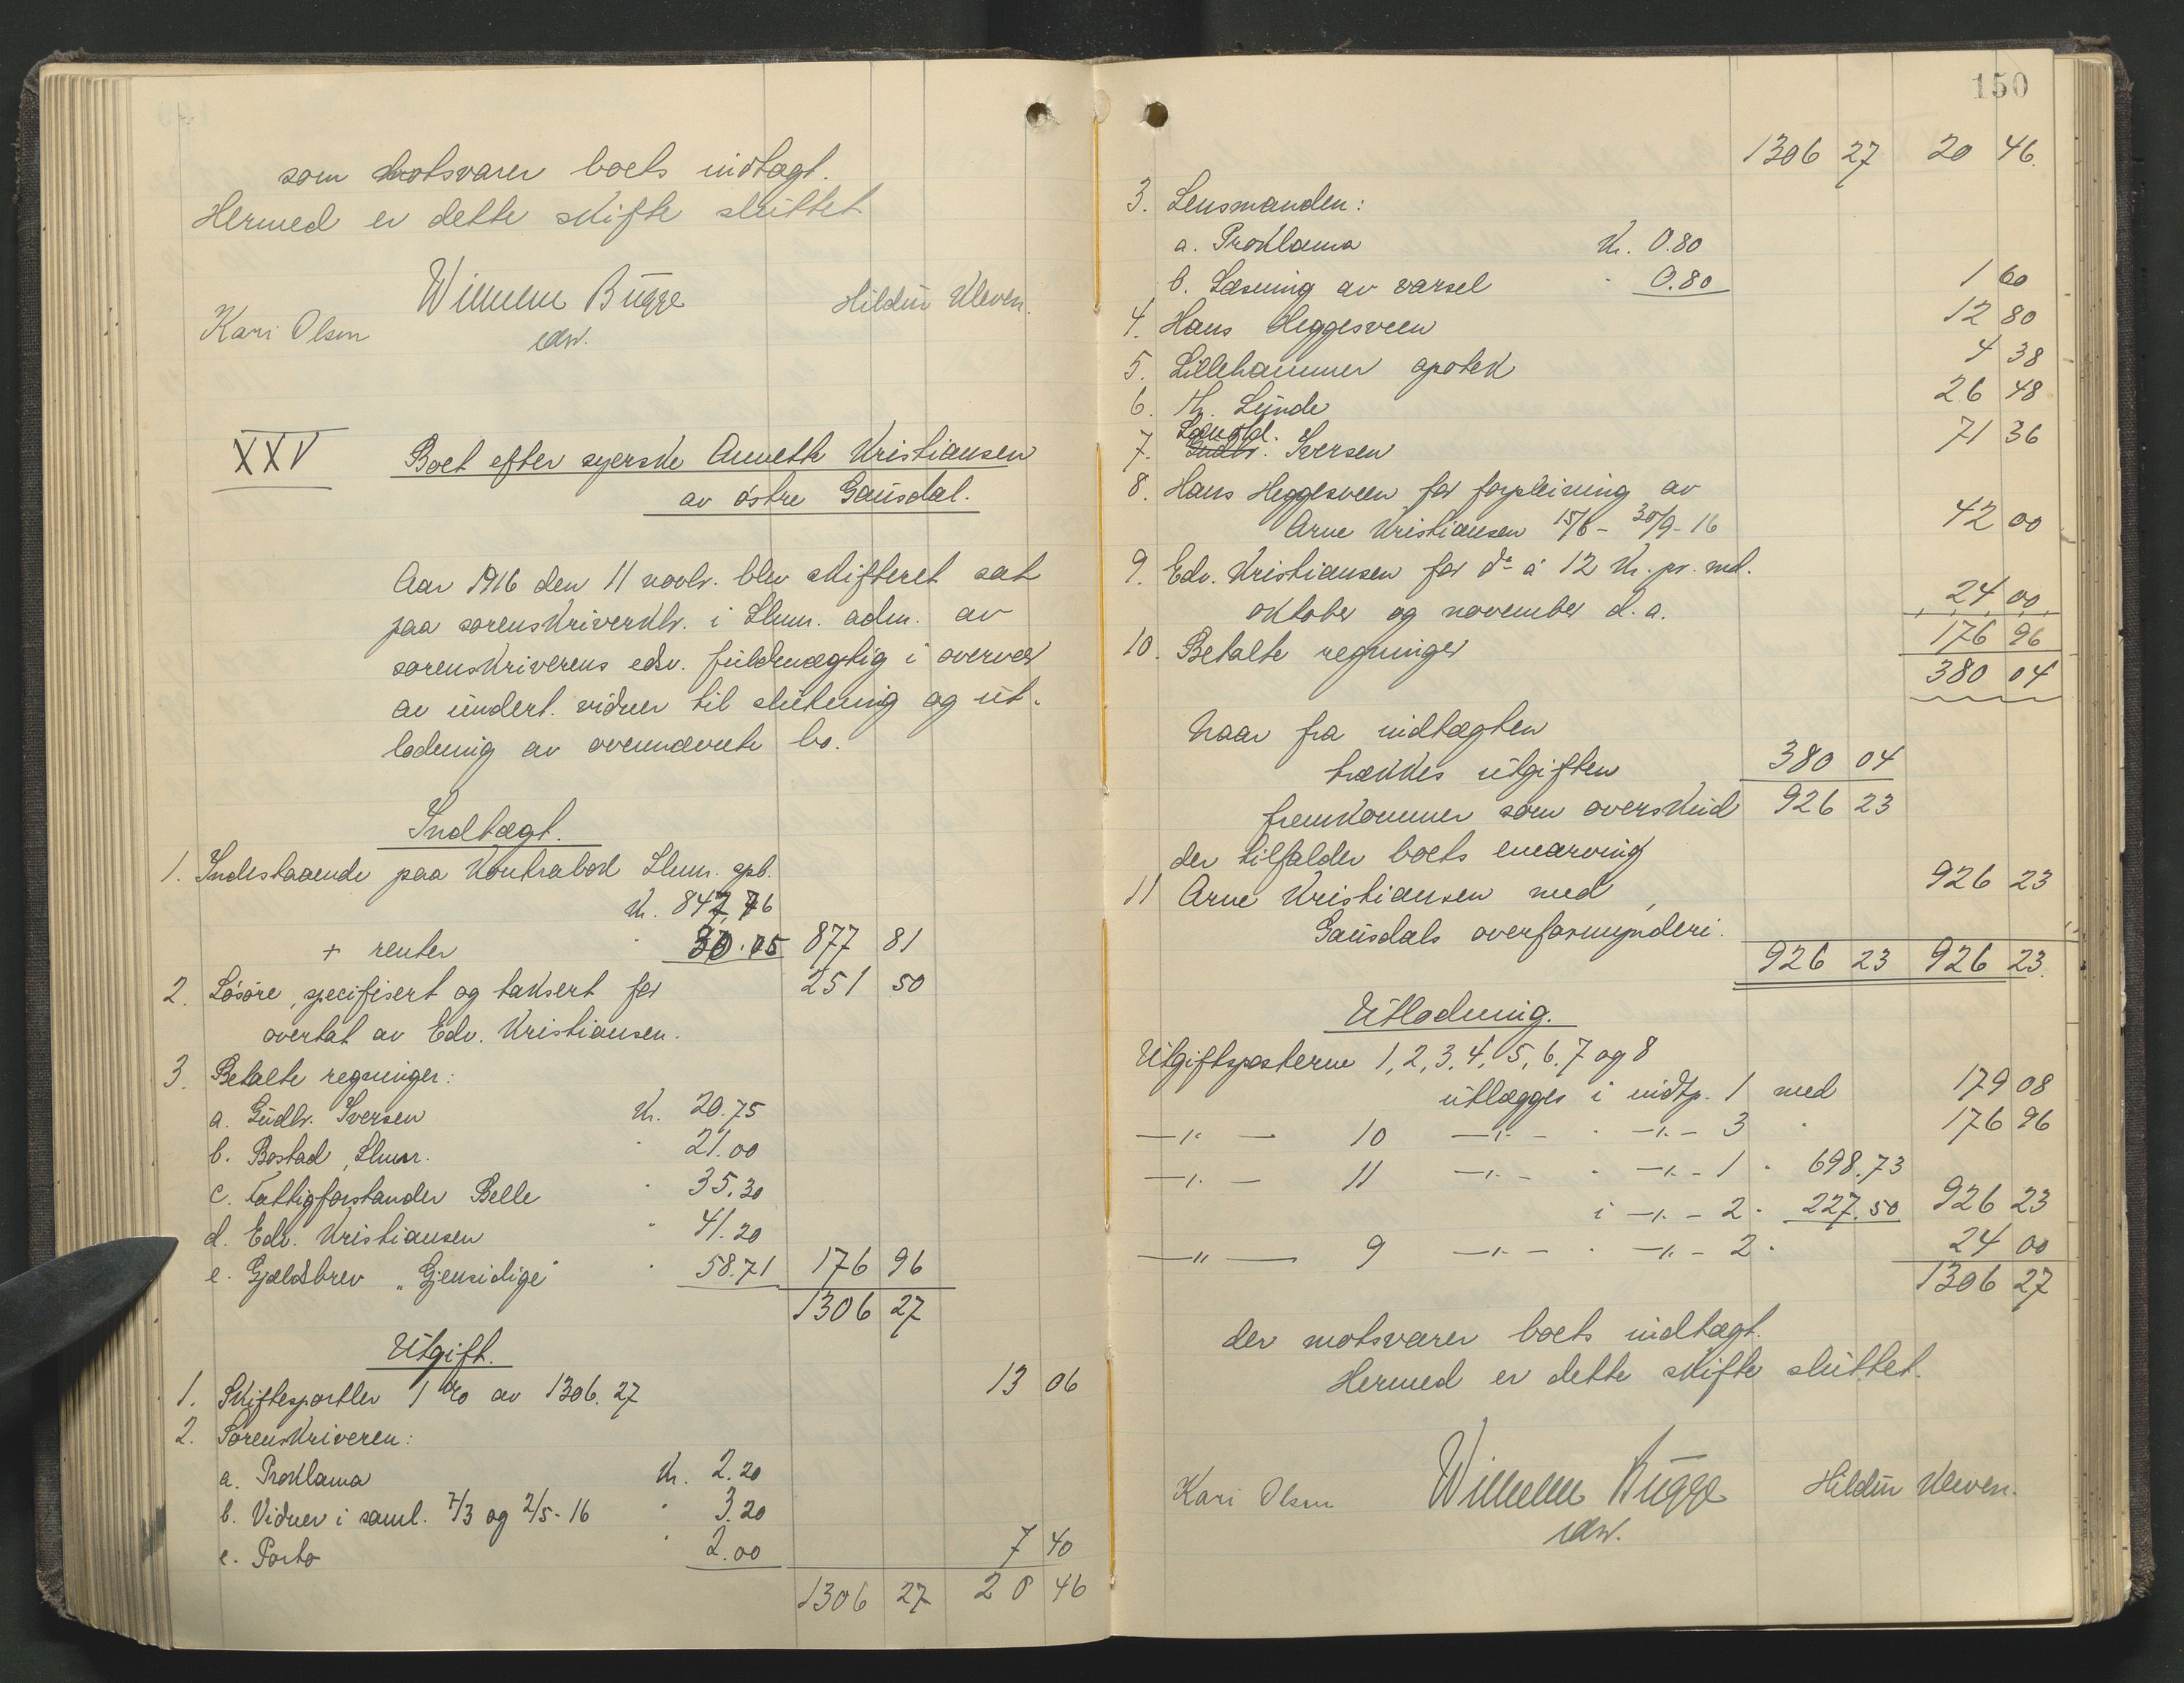 som motsvarer boets indtægt.
Hermed er dette skifte sluttet
Wilhelm Bugge
edv.
Kari Olsen
Hildur Kleven.
XXV
Boet efter syerske Annette Kristiansen
av østre Gausdal.
Aar 1916 den 11 novbr. blev skifteret sat
paa sorenskriverktr. i Lhmr. adm. av
sorenskriverens edv. fuldmægtig i overvær
av undert. vidner til slutning og ut-
lodning av ovennævnte bo.
Indtægt.
1. Indestaaende paa Kontrabok Lhmr. spb.
Kr. 847,76
+ renter " 30.05 877 81
2. Løsøre, specifisert og taksert for 251 50
overtat av Edv. Kristiansen.
3. Betalte regninger:
a. Gudbr. Iversen Kr. 20.75
b. Bostad, Lhmr. " 21.00
c. Fattigforstander Belle " 35.30
d. Edv. Kristiansen " 41.20
e. Gjældsbrev "Gjensidige" " 58.71 176 96
1306 27
Utgift.
1. Skiftesportler 1 % av 1306.27 13 06
2. Sorenskriveren:
a. Proklama Kr. 2.20
b. Vidner i saml. 7/3 og 2/5-16 " 3.20
c. Porto " 2.00 7 40
1306 27 20 46
150
1306 27 20 46.
3. Lensmanden:
a. Proklama Kr. 0.80
b. Læsning av varsel " 0.80 1 60
4. Hans Heggesveen 12 80
5. Lillehammer apotek 4 38
6. Th. Lunde 26 48
Landhl.
7. Gudbr. Iversen 71 36
8. Hans Heggesveen for forpleining av
Arne Kristiansen 15/6 - 30/9-16 42 00
9. Edv. Kristiansen for do à 12 Kr. pr. md.
oktober og november d.a. 24 00
10. Betalte regninger 176 96
380 04
Naar fra indtægten
trækkes utgiften 380 04
fremkommer som overskud 926 23
der tilfalder boets enearving
11 Arne Kristiansen med 926 23
Gausdals overformynderi.
926 23 926 23.
Utlodning.
Utgiftsposterne 1, 2, 3, 4, 5, 6, 7 og 8
utlægges i indtp. 1 med 179 08
—"— 10 —"— " —"— 3 " 176 96
—"— 11 —"— " —"— 1 " 698.73
i —"— 2 " 227.50 926 23
—"— 9 —"— " —"— 2 " 24 00
1306 27
der motsvarer boets indtægt.
Hermed er dette skifte sluttet.
Wilhelm Bugge
edv.
Kari Olsen
Hildur Kleven.